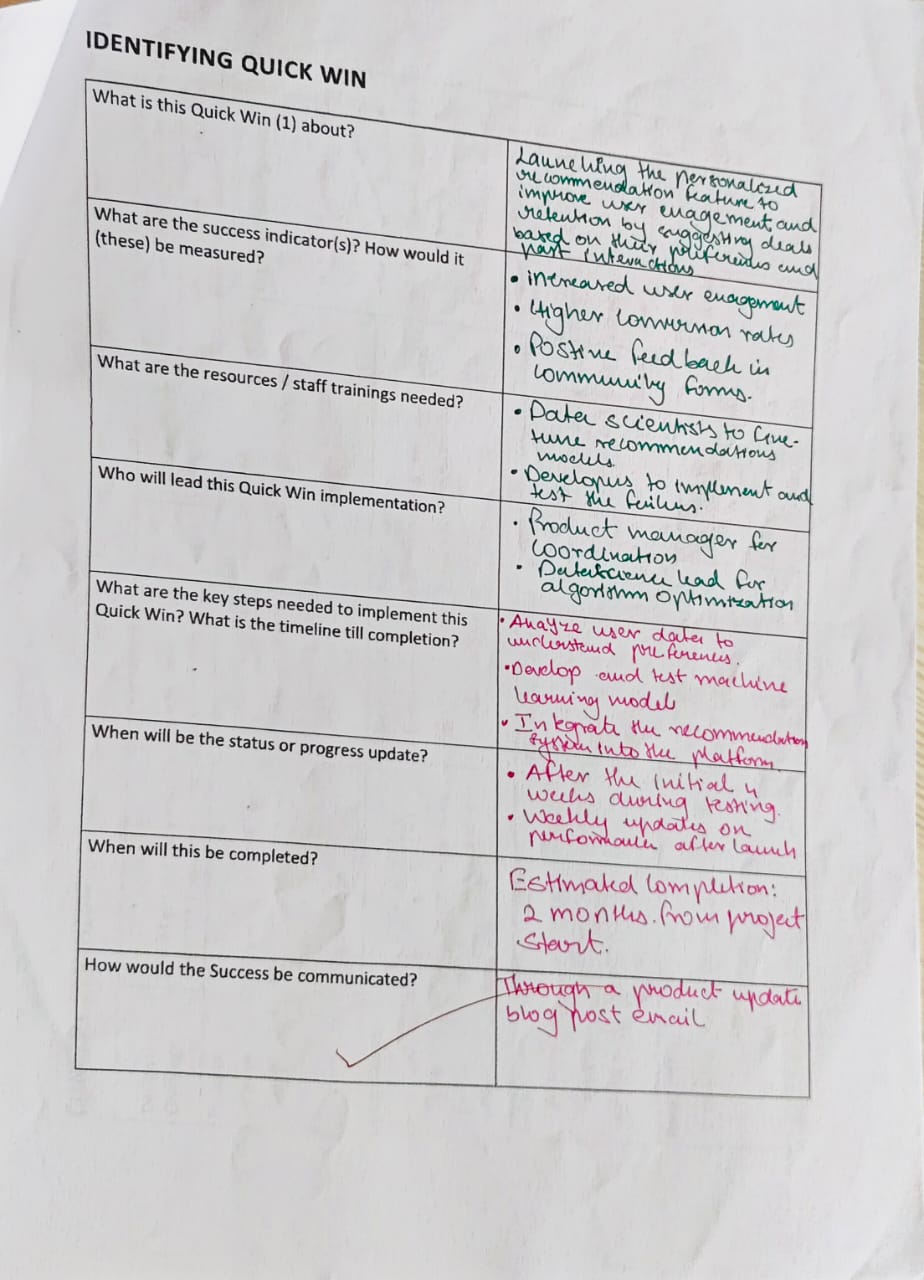 IDENTIFYING QUICK WIN
What is this Quick Win (1) about?
Launching the personalized
recommendation feature to
improve user enagement, and
retention by suggesting deals
based on their preferences and
past interactions
What are the success indicator(s)? How would it
(these) be measured?
• increased user enagement
• Higher conversion rates
• Postive feedback in
community forms.
What are the resources / staff trainings needed?
• Data scientists to fine-
tune recommendations
models.
• Developers to implement and
test the
Who will lead this Quick Win implementation?
• Product manager for
coordination
• Datascience lead for
algorithm optimization
What are the key steps needed to implement this
Quick Win? What is the timeline till completion?
• Anayze user data to
understand preferences.
• Develop and test machine
learning model
• Integrate the recommendation
system into the platform.
When will be the status or progress update?
• After the initial 4
weeks during testing.
• Weekly updates on
performance after launch
When will this be completed?
Estimated completion:
2 months. from project
start.
How would the Success be communicated?
Through a product update
blog post email